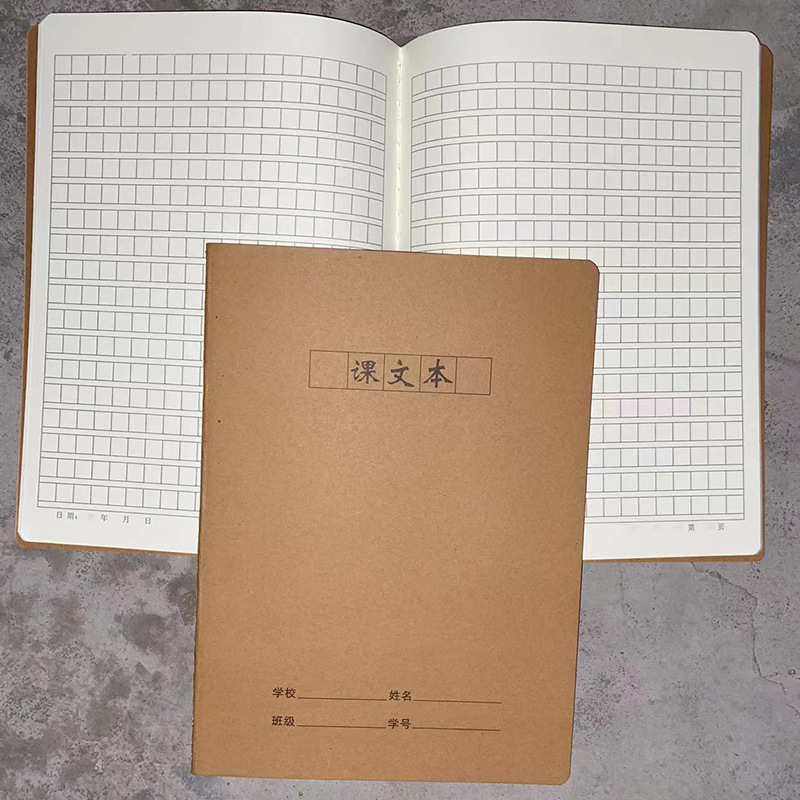 日期: 年 月 日
第 页
课文本
学校 姓名
班级 学号